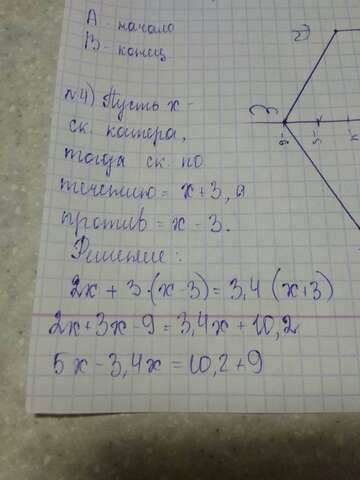 А - начало
В - конец
№4) Пусть х -
ск. катера,
тогда ск. по
течению = х+3, а
против = х - 3.
Решение:
2х + 3·(х-3) = 3,4 (х+3)
2х+3х-9 = 3,4х + 10,2
5х - 3,4х = 10,2+9
2)